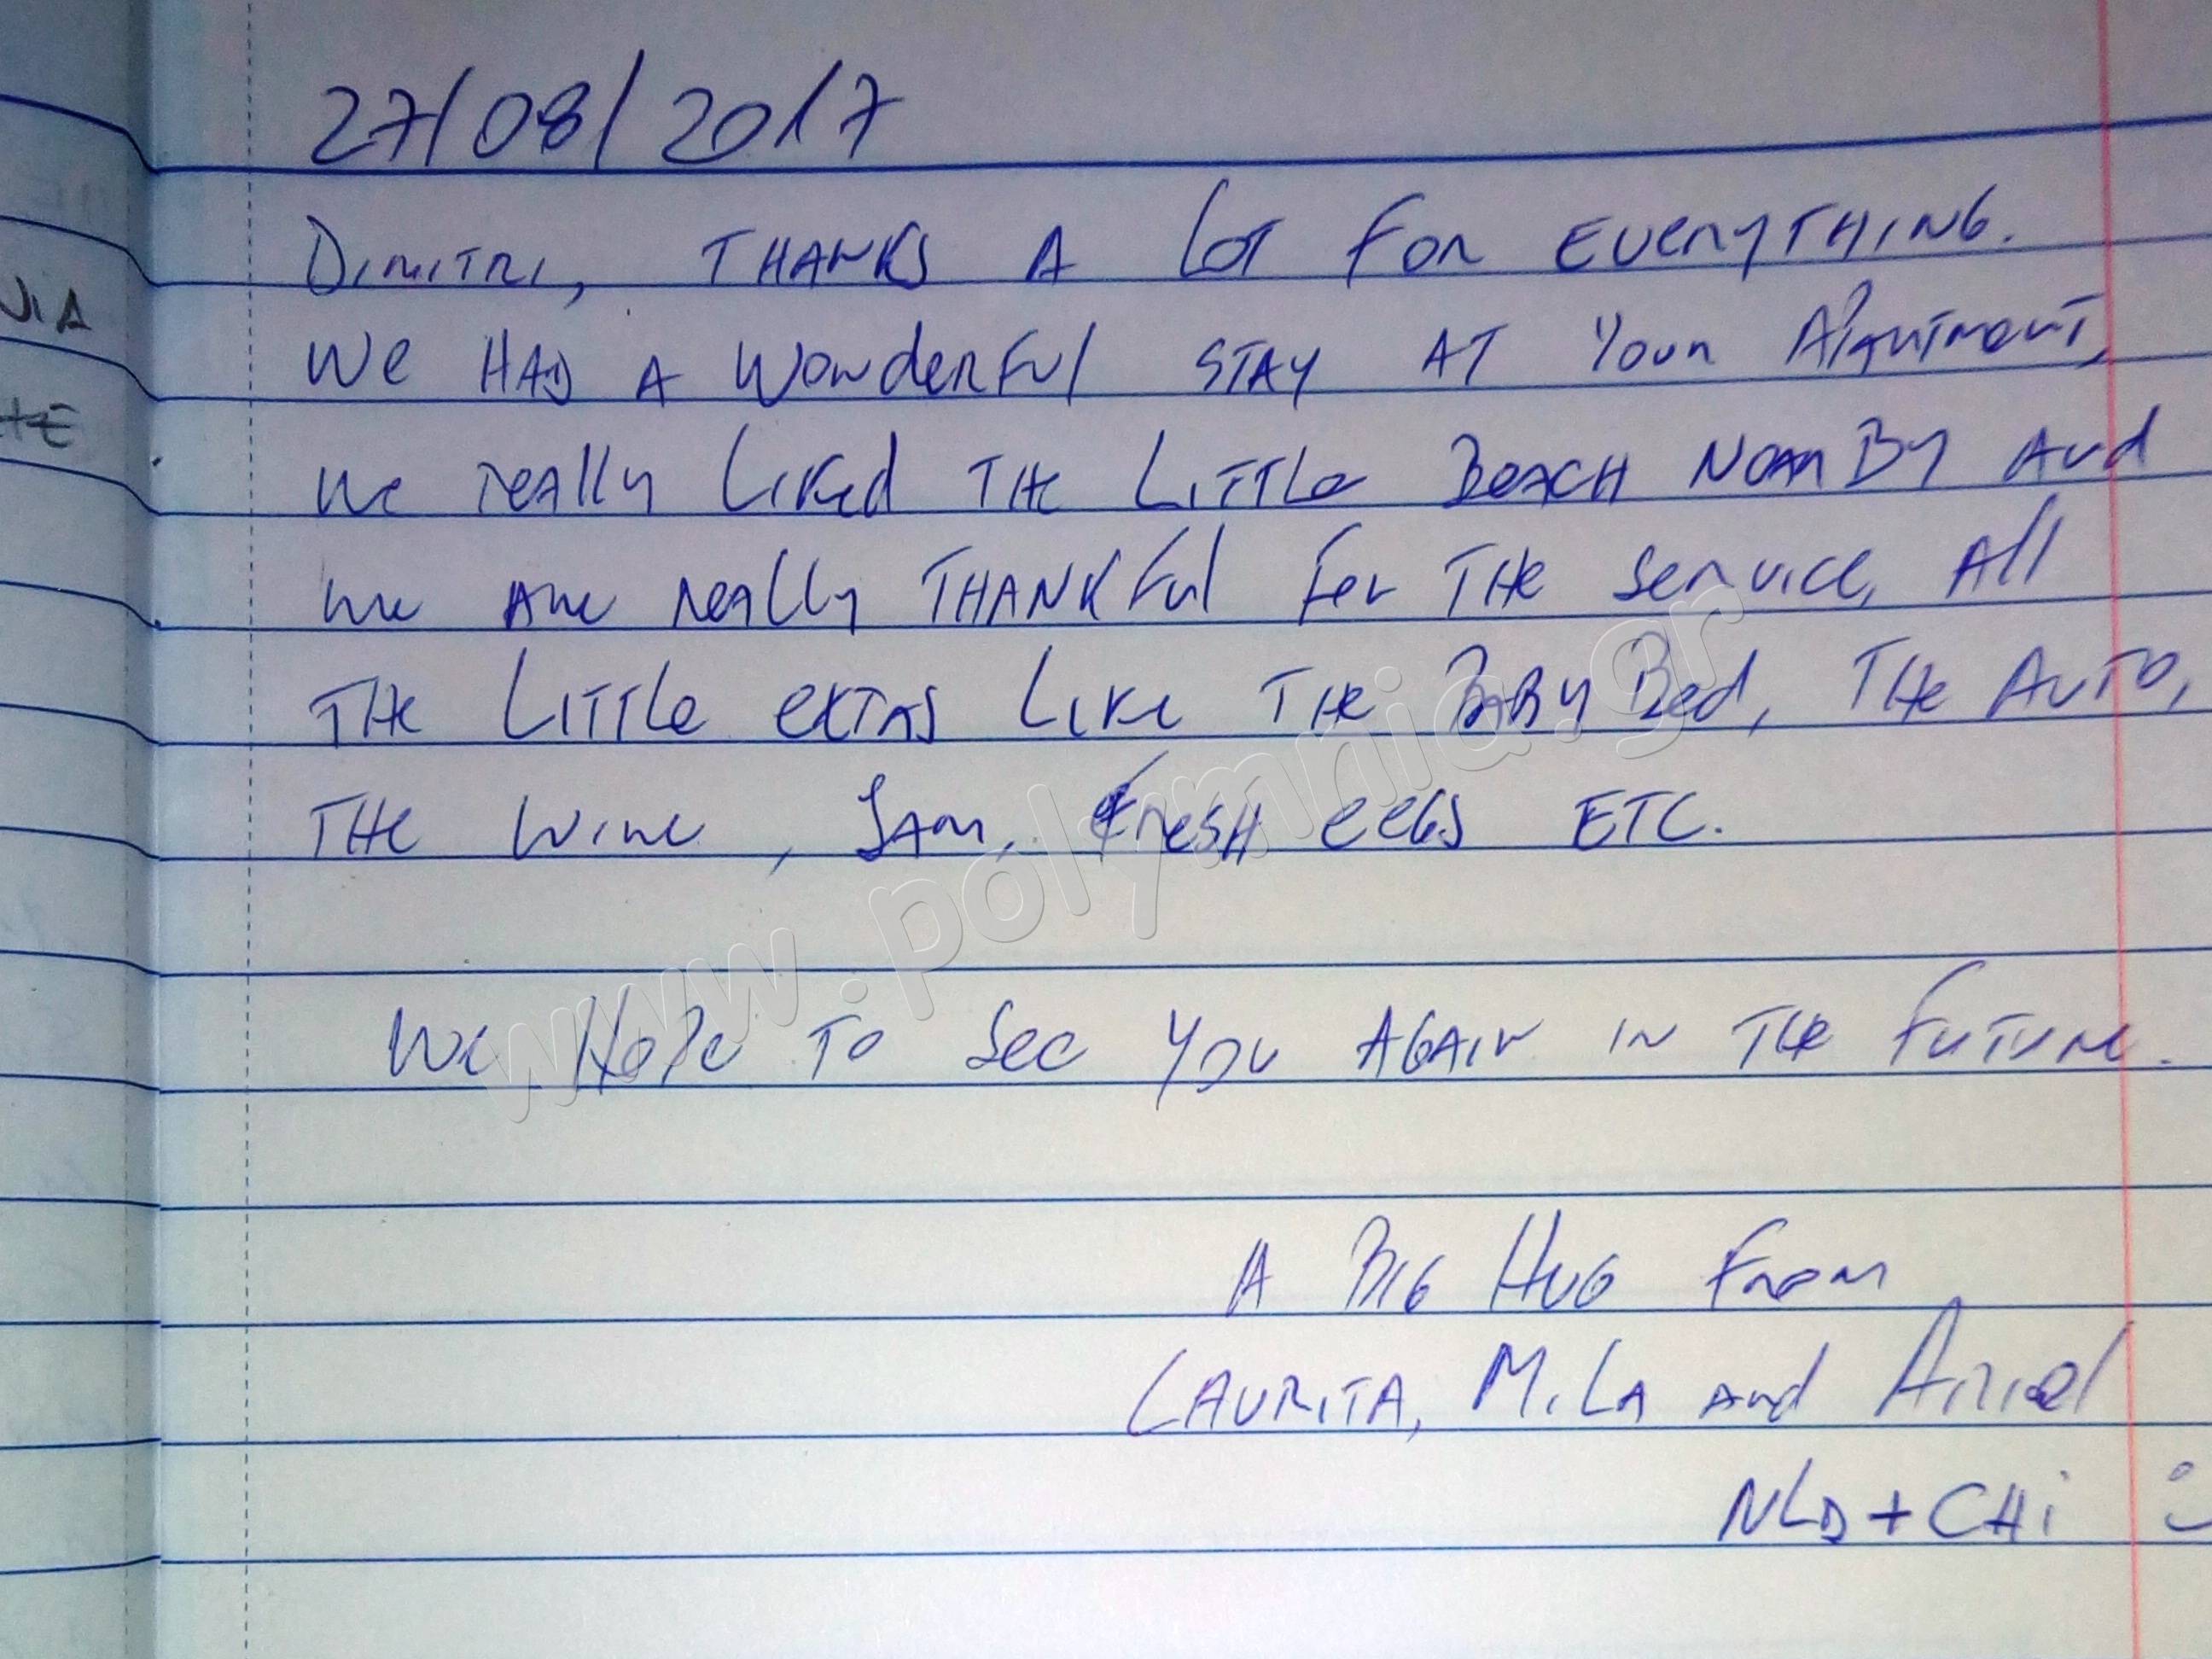 27/08/2017
Dimitri, THANKS A Lot For EveryTHING.
We HAD A Wonderful STAY AT Your Apartment,
We really Liked THe Little BeACH NeArBy And
We Are really THANKful For THe Service, All
THe Little extras Like THe BABy Bed, THe Auto,
THe Wine, JAm, FresH eggs ETC.
We Hope To See You AGAIN IN THe Future.
A BIG HUG From
LAURITA, MiLA and Ariel
NLD + CHi :)
www.polymnia.gr